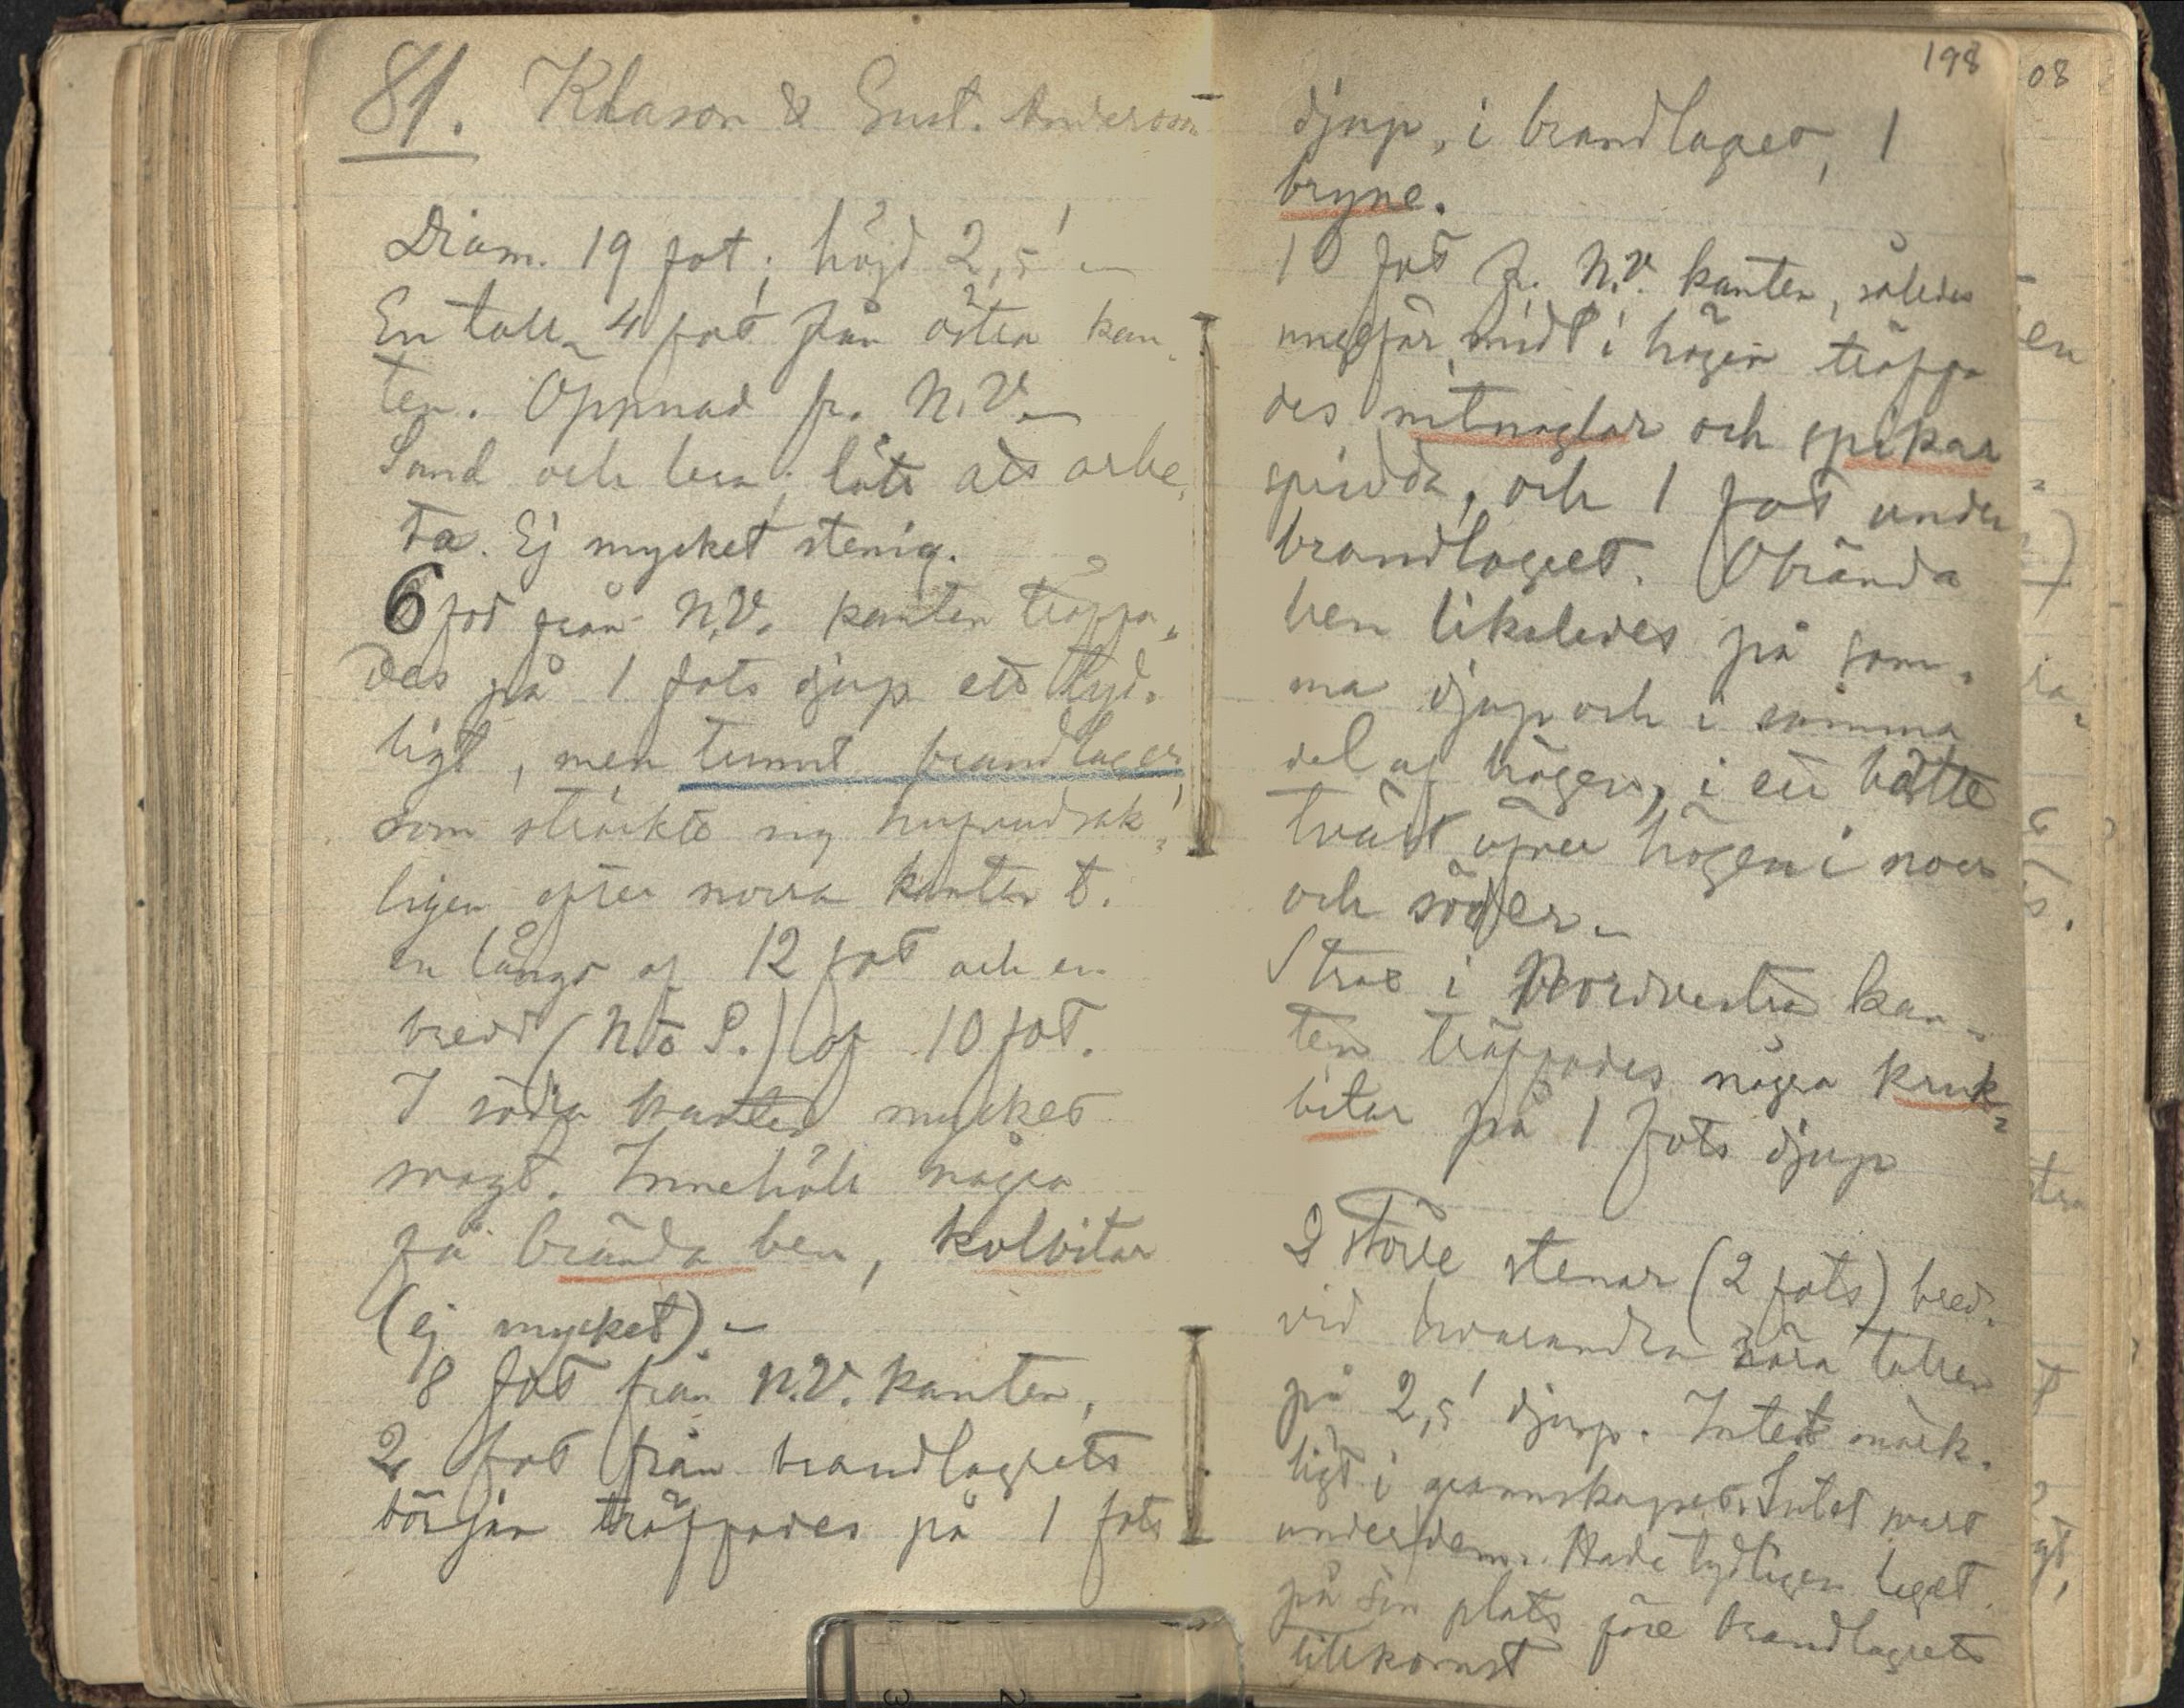 81. Klason & Gust. Andersson
Diam. 19 fot; höjd 2,5' –
En tall 4 fot från östra kan-
ten. Öppnad fr. N.V. –
Sand och lera; lätt att arbe-
ta. Ej mycket stenig.
6 fot från N.V. kanten träffa-
des på 1 fots djup ett tyd-
ligt, men tunnt brandlager,
som sträckte sig hufvudsak-
ligen efter norra kanten t.
en längd af 12 fot och en
bredd (N. o S.) af 10 fot.
I södra kanten mycket
svagt. Innehöll några
få brända ben, kolbitar
(ej mycket). –
8 fot från N.V. kanten,
2 fot från brandlagrets
början träffades på 1 fots
198
djup, i brandlagret, 1
bryne.
10 fot fr. N.V. kanten, således
ungefär midt i högen träffa
des nitnaglar och spikar
spridda, och 1 fot under
brandlagret. Obrända
ben likaledes på sam-
ma djup och i samma
del af högen, i ett bälte
tvärt öfver högen i norr
och söder. –
Strax i Nordvestra kan-
ten träffades några kruk-
bitar på 1 fots djup
2 större stenar (2 fots) bred-
vid hvarandra nära tallen
på 2,5' djup. Intet märk-
ligt i grannskapet. Intet svart
under dem. Hade tydligen legat
på sin plats före brandlagrets
tillkomst
08